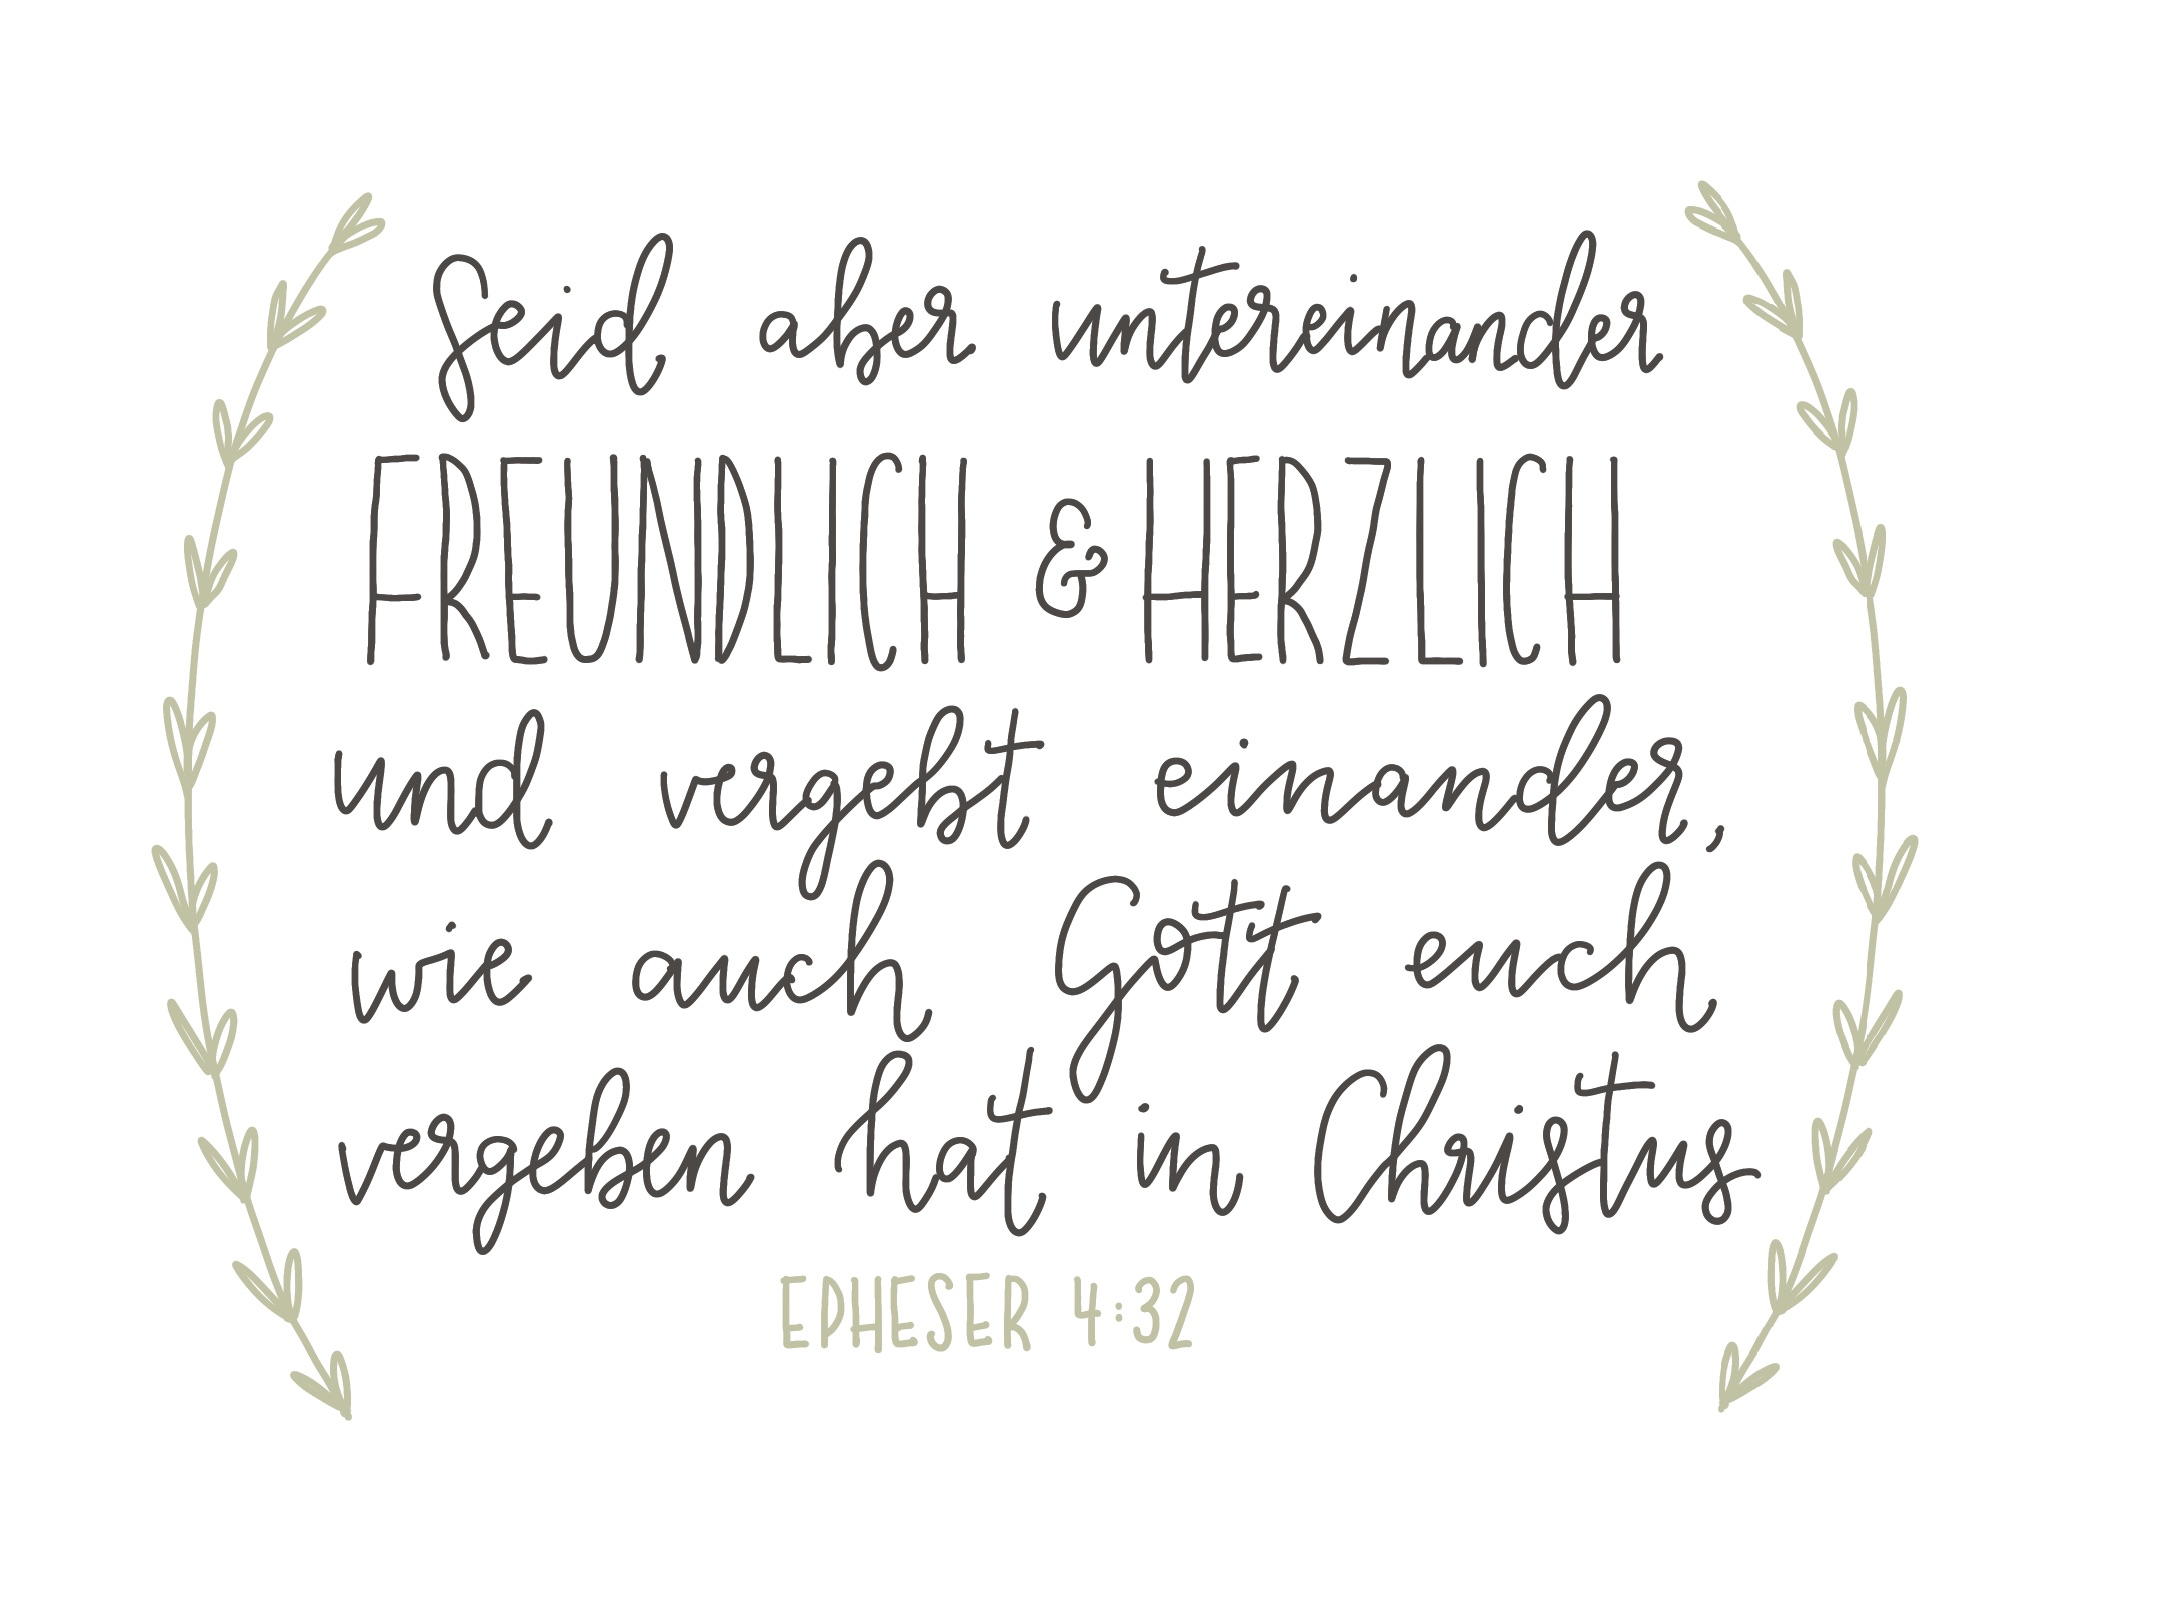 Seid aber untereinander
FREUNDLICH & HERZLICH
und vergebt einander,
wie auch Gott euch
vergeben hat in Christus
EPHESER 4:32